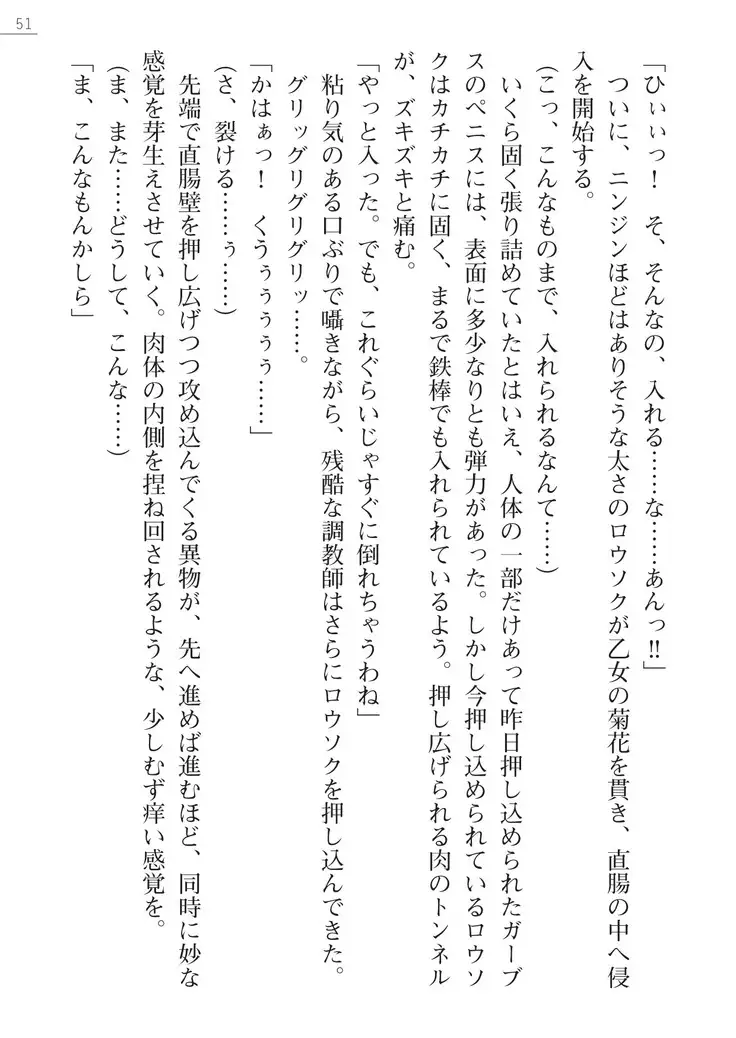 51
「ひぃぃっ！　そ、そんなの、入れる……な……あんっ!!」
ついに、ニンジンほどはありそうな太さのロウソクが乙女の菊花を貫き、直腸の中へ侵
入を開始する。
(こっ、こんなものまで、入れられるなんて……)
いくら固く張り詰めていたとはいえ、人体の一部だけあって昨日押し込められたガーブ
スのペニスには、表面に多少なりとも弾力があった。しかし今押し込められているロウソ
クはカチカチに固く、まるで鉄棒でも入れられているよう。押し広げられる肉のトンネル
が、ズキズキと痛む。
「やっと入った。でも、これぐらいじゃすぐに倒れちゃうわね」
粘り気のある口ぶりで囁きながら、残酷な調教師はさらにロウソクを押し込んできた。
グリッグリグリグリッ……。
「かはぁっ！　くうぅぅぅぅ……」
(さ、裂ける……ぅ……)
先端で直腸壁を押し広げつつ攻め込んでくる異物が、先へ進めば進むほど、同時に妙な
感覚を芽生えさせていく。肉体の内側を捏ね回されるような、少しむず痒い感覚を。
(ま、また……どうして、こんな……)
「ま、こんなもんかしら」